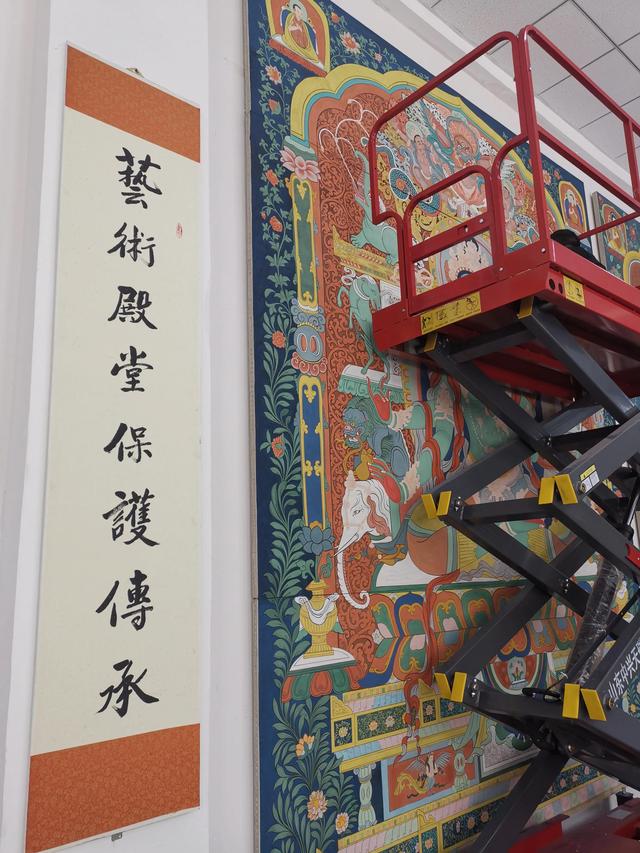 藝術殿堂保護傳承